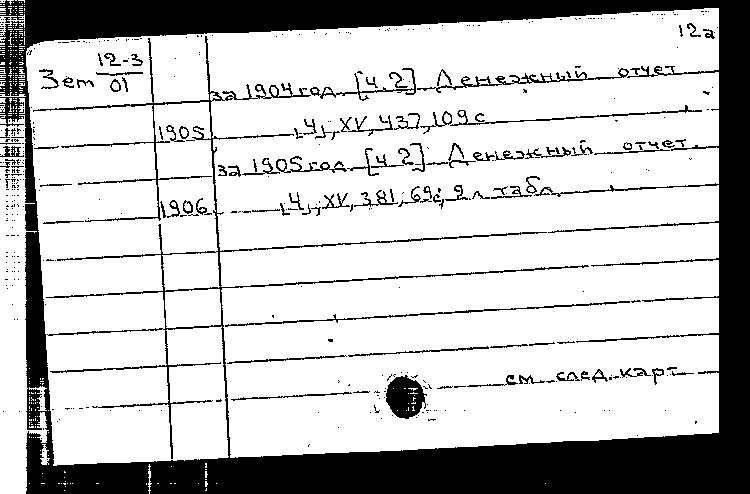 12а
Зет 12-3/01
за 1904 год. [ч. 2] Денежный отчет
1905 [4], XV, 437, 109 с
за 1905 год. [ч 2]. Денежный отчет.
1906. [4], XV, 381, 69с; 9 л табл.
см след. карт